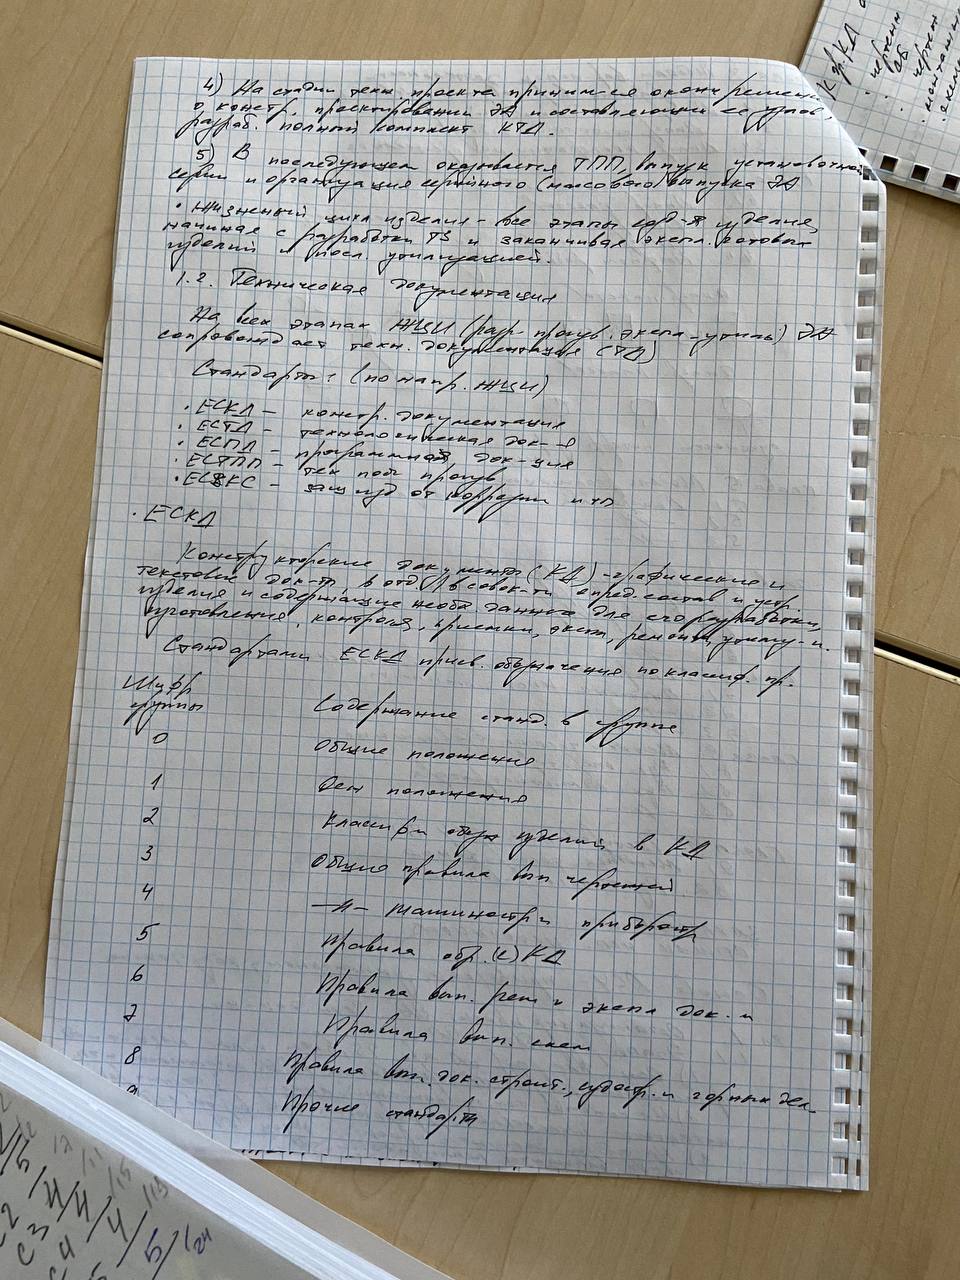 4) На стадии техн. проекта приним-ся оконч решение
о констр. проектировании ЭА и составляющих ее узлов,
разраб. полный комплект КТД.
5) В последующем оказывается ТПП, выпуск установочной
серии и организация серийного (массового) выпуска ЭА
• Жизненный цикл изделия - все этапы изделия,
начиная с разработки ТЗ и заканчивая экспл. готовых
изделий и посл. утилизацией.
1.2. Техническая документация
На всех этапах ЖЦИ (разр. - произв. - экспл. - утилиз) ЭА
сопровождает техн. документация (ТД)
Стандарты: (по напр. ЖЦИ)
• ЕСКД - констр. документация
• ЕСТД - технологическая док-я
• ЕСПД - программная док-ция
• ЕСТПП - тех подг произв
• ЕСЗКС - защ изд от коррозии и т.п
• ЕСКД
Конструкторские документы (КД) - графические и
текстовые док-ты, в отд./в совок-ти опред. состав и устр.
изделия и содержащие необх данные для его разработки,
изготовления, контроля, приемки, экспл, ремонта, утилиз-и.
Стандартами ЕСКД присв. обозначения по классиф. пр.
Шифр
группы
Содержание станд. в группе
0 Общие положения
1 Осн положения
2 Классиф и обозн изделий в КД
3 Общие правила вып чертежей
4 —//— машиностр и приборостр
5 Правила обр. КД
6 Правила вып. рем и экспл док-и
7 Правила вып. схем
8 Правила вып. док. строит., судостр. и горных дел
9 Прочие стандарты
КД
чертеж
СБ
• чертеж